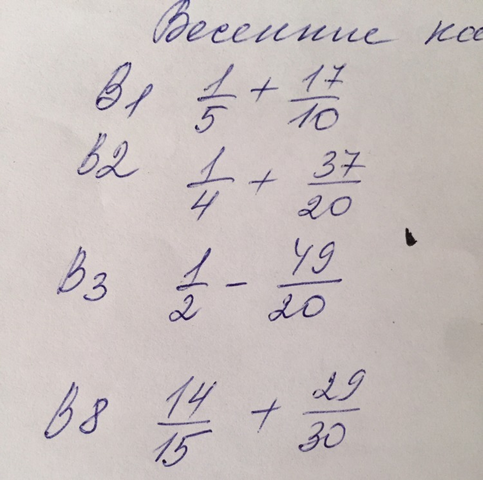 Весенние ка
В1 1/5 + 17/10
В2 1/4 + 37/20
В3 1/2 - 49/20
В8 14/15 + 29/30